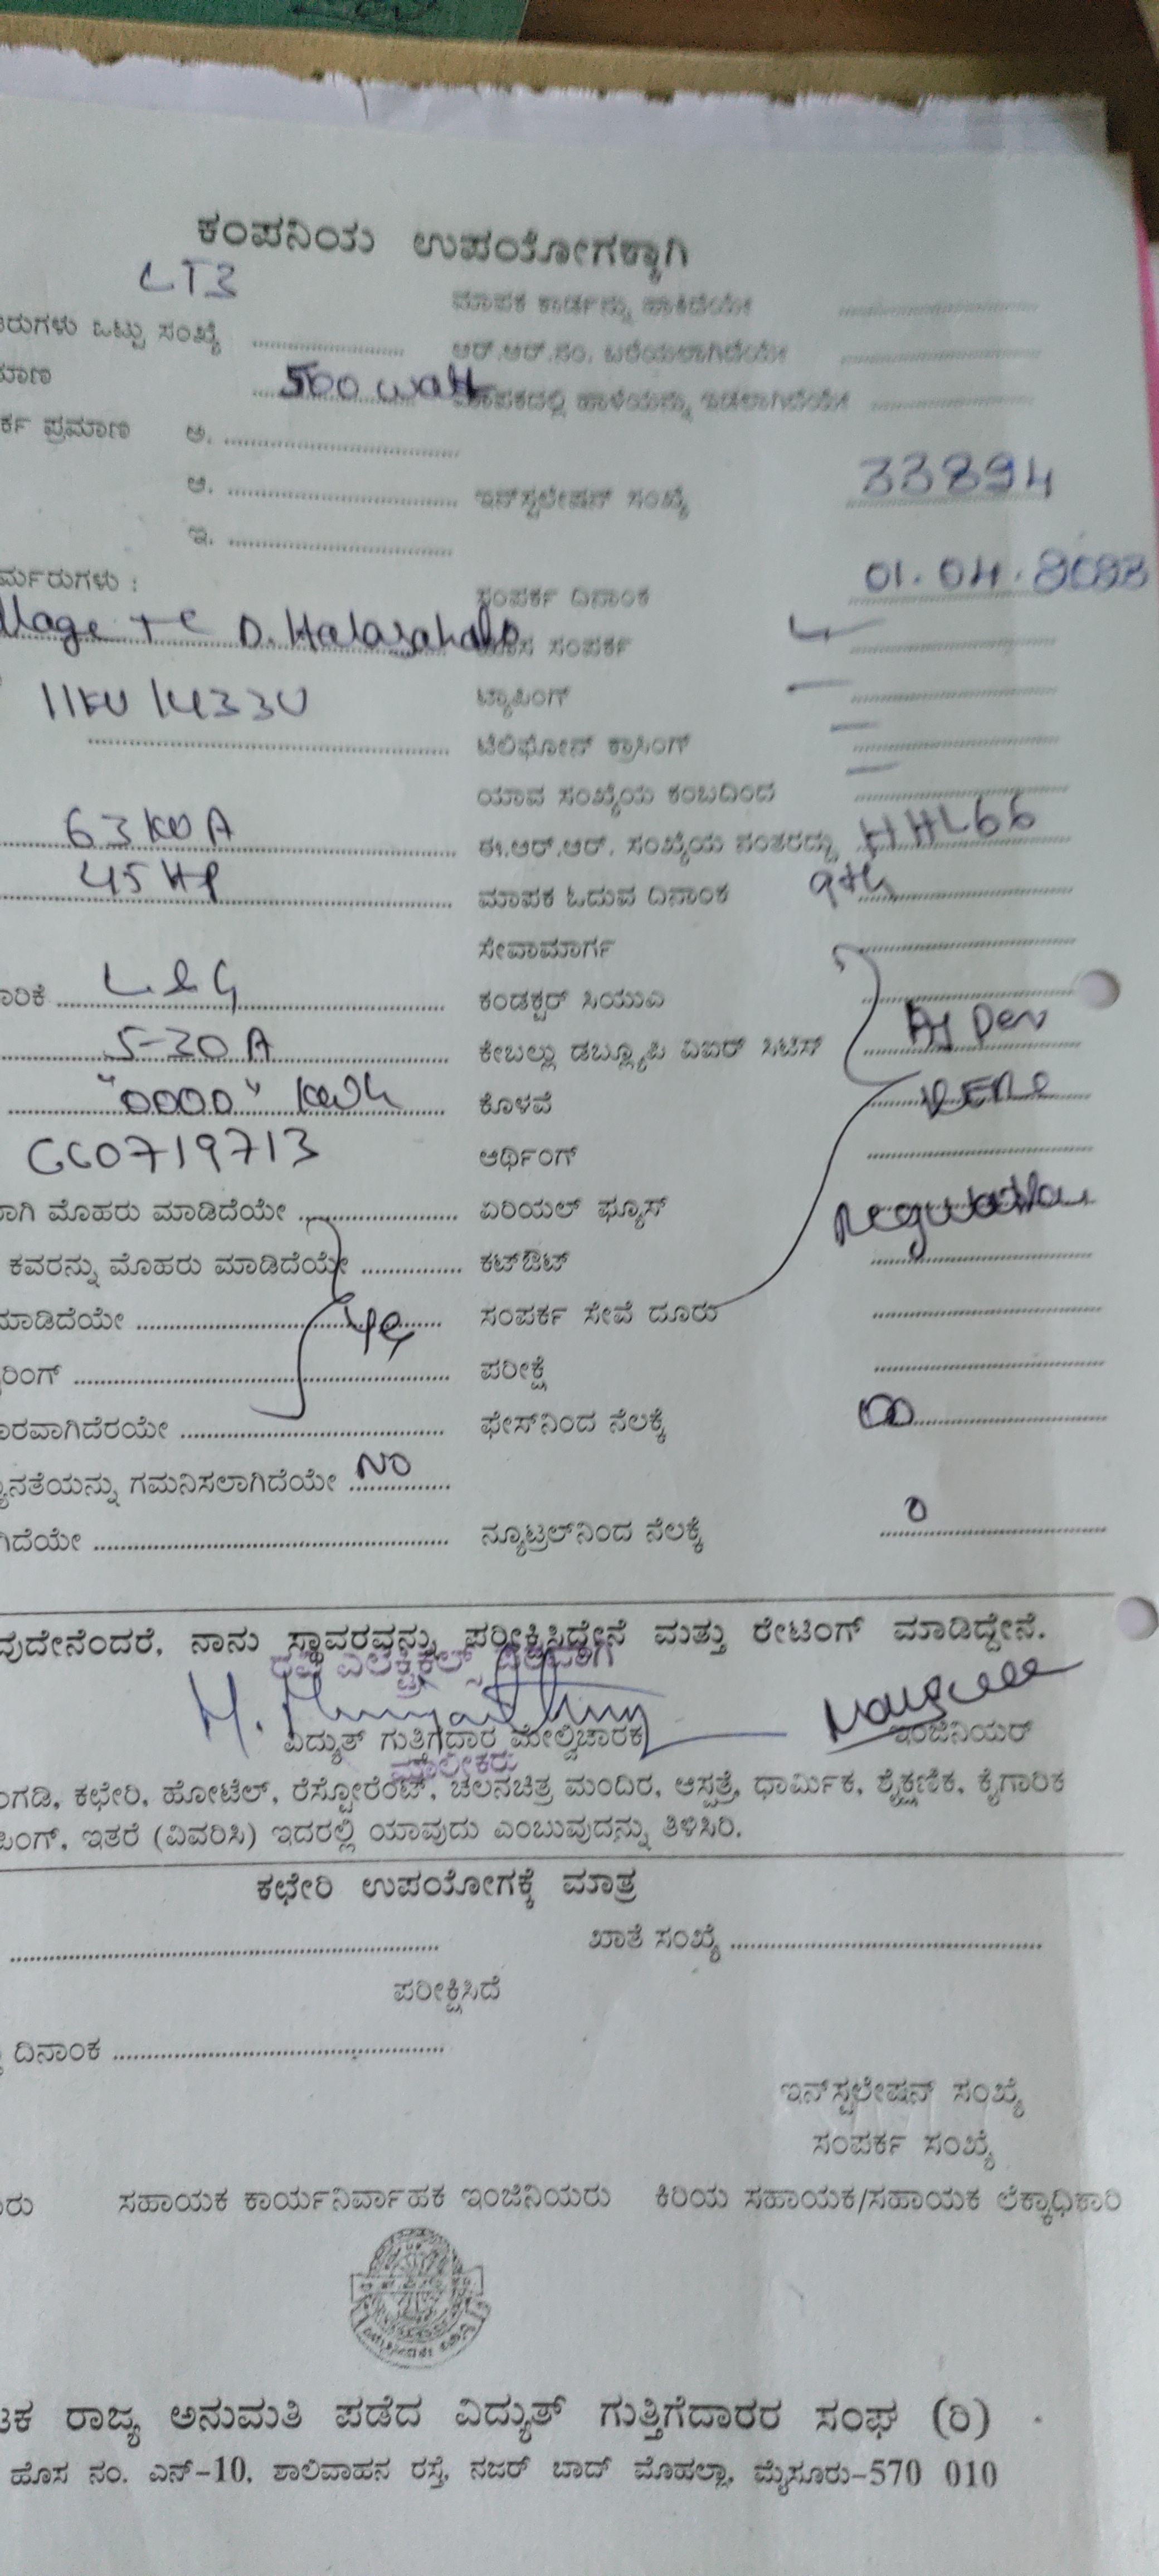 ಕಂಪನಿಯ ಉಪಯೋಗಕ್ಕಾಗಿ
LT3
ಮಾಪಕ ಕಾರ್ಡನ್ನು ಹಾಕಿದೆಯೇ ....................
ರುಗಳು ಒಟ್ಟು ಸಂಖ್ಯೆ .................... ಆರ್.ಆರ್.ನಂ. ಬರೆಯಲಾಗಿದೆಯೇ ....................
ಮಾಣ 500 watt ಮಾಪಕದಲ್ಲಿ ಹಾಳೆಯನ್ನು ಇಡಲಾಗಿದೆಯೇ ....................
ರ್ಕ ಪ್ರಮಾಣ ಅ. ....................
ಆ. .................... ಇನ್‌ಸ್ಟಲೇಷನ್ ಸಂಖ್ಯೆ 33894
ಇ. ....................
ರ್ಮರುಗಳು : ಸಂಪರ್ಕ ದಿನಾಂಕ 01.04.2023
llage TC D. Halasahalli ಸಂಪರ್ಕ
11KV 1433V ಟ್ಯಾಪಿಂಗ್ —
.................... ಟೆಲಿಫೋನ್ ಕ್ರಾಸಿಂಗ್ —
ಯಾವ ಸಂಖ್ಯೆಯ ಕಂಬದಿಂದ —
63 KVA ಈ.ಆರ್.ಆರ್. ಸಂಖ್ಯೆಯ ನಂತರದ್ದು HHL66
45 HP ಮಾಪಕ ಓದುವ ದಿನಾಂಕ 9th
ಸೇವಾಮಾರ್ಗ ....................
ಾರಿಕೆ L&G ಕಂಡಕ್ಟರ್ ಸಿಯುಎ ....................
5-30 A ಕೇಬಲ್ಲು ಡಬ್ಲ್ಯೂಪಿ ವಿಐಆರ್ ಸಿಟಿಸ್ As per
"0000" KWh ಕೊಳವೆ KERC
GG0719713 ಆರ್ಥಿಂಗ್ ....................
ಾಗಿ ಮೊಹರು ಮಾಡಿದೆಯೇ .................... ಏರಿಯಲ್ ಫ್ಯೂಸ್ Regulation
ಕವರನ್ನು ಮೊಹರು ಮಾಡಿದೆಯೇ .............. ಕಟ್‌ಔಟ್ ....................
ಮಾಡಿದೆಯೇ .................... ಸಂಪರ್ಕ ಸೇವೆ ದೂರು ....................
ರಿಂಗ್ .................... ಪರೀಕ್ಷೆ ....................
ಾರವಾಗಿದೆರಯೇ .................... ಫೇಸ್‌ನಿಂದ ನೆಲಕ್ಕೆ ∞
್ಯನತೆಯನ್ನು ಗಮನಿಸಲಾಗಿದೆಯೇ NO
ಗಿದೆಯೇ .................... ನ್ಯೂಟ್ರಲ್‌ನಿಂದ ನೆಲಕ್ಕೆ 0
ವುದೇನೆಂದರೆ, ನಾನು ಸ್ಥಾವರವನ್ನು ಪರೀಕ್ಷಿಸಿದ್ದೇನೆ ಮತ್ತು ರೇಟಿಂಗ್ ಮಾಡಿದ್ದೇನೆ.
ಎಲೆಕ್ಟ್ರಿಕಲ್ಸ್
ವಿದ್ಯುತ್ ಗುತ್ತಿಗೆದಾರ ಮೇಲ್ವಿಚಾರಕ ಇಂಜಿನಿಯರ್
ಮಾಲೀಕರು
ಂಗಡಿ, ಕಛೇರಿ, ಹೋಟೆಲ್, ರೆಸ್ಟೋರೆಂಟ್, ಚಲನಚಿತ್ರ ಮಂದಿರ, ಆಸ್ಪತ್ರೆ, ಧಾರ್ಮಿಕ, ಶೈಕ್ಷಣಿಕ, ಕೈಗಾರಿಕ
ಪಿಂಗ್, ಇತರೆ (ವಿವರಿಸಿ) ಇದರಲ್ಲಿ ಯಾವುದು ಎಂಬುವುದನ್ನು ತಿಳಿಸಿರಿ.
ಕಛೇರಿ ಉಪಯೋಗಕ್ಕೆ ಮಾತ್ರ
.................... ಖಾತೆ ಸಂಖ್ಯೆ ....................
ಪರೀಕ್ಷಿಸಿದೆ
ದಿನಾಂಕ ....................
ಇನ್‌ಸ್ಟಲೇಷನ್ ಸಂಖ್ಯೆ
ಸಂಪರ್ಕ ಸಂಖ್ಯೆ
ರು ಸಹಾಯಕ ಕಾರ್ಯನಿರ್ವಾಹಕ ಇಂಜಿನಿಯರು ಕಿರಿಯ ಸಹಾಯಕ/ಸಹಾಯಕ ಲೆಕ್ಕಾಧಿಕಾರಿ
ಟಕ ರಾಜ್ಯ ಅನುಮತಿ ಪಡೆದ ವಿದ್ಯುತ್ ಗುತ್ತಿಗೆದಾರರ ಸಂಘ (ರಿ)
ಹೊಸ ನಂ. ಎನ್-10, ಶಾಲಿವಾಹನ ರಸ್ತೆ, ನಜರ್ ಬಾದ್ ಮೊಹಲ್ಲಾ, ಮೈಸೂರು-570 010